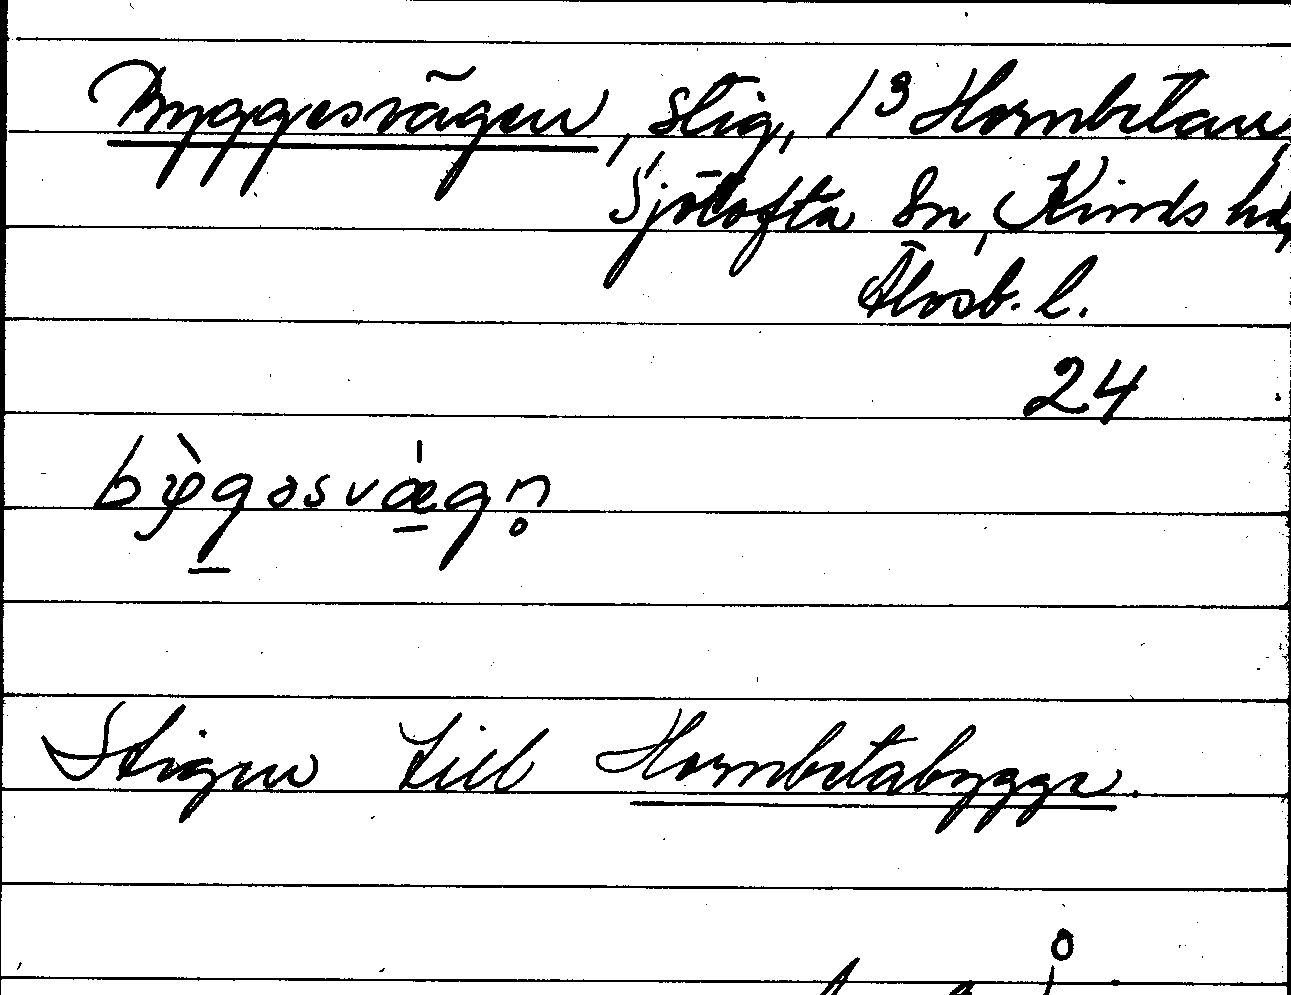 Byggesvägen, stig, 13 Hornbetan,
Sjötofta Sn, Kinds hd,
Älvsb. l.
24
by̆gəsvægn̥
Stigen till Hornbetabygge.